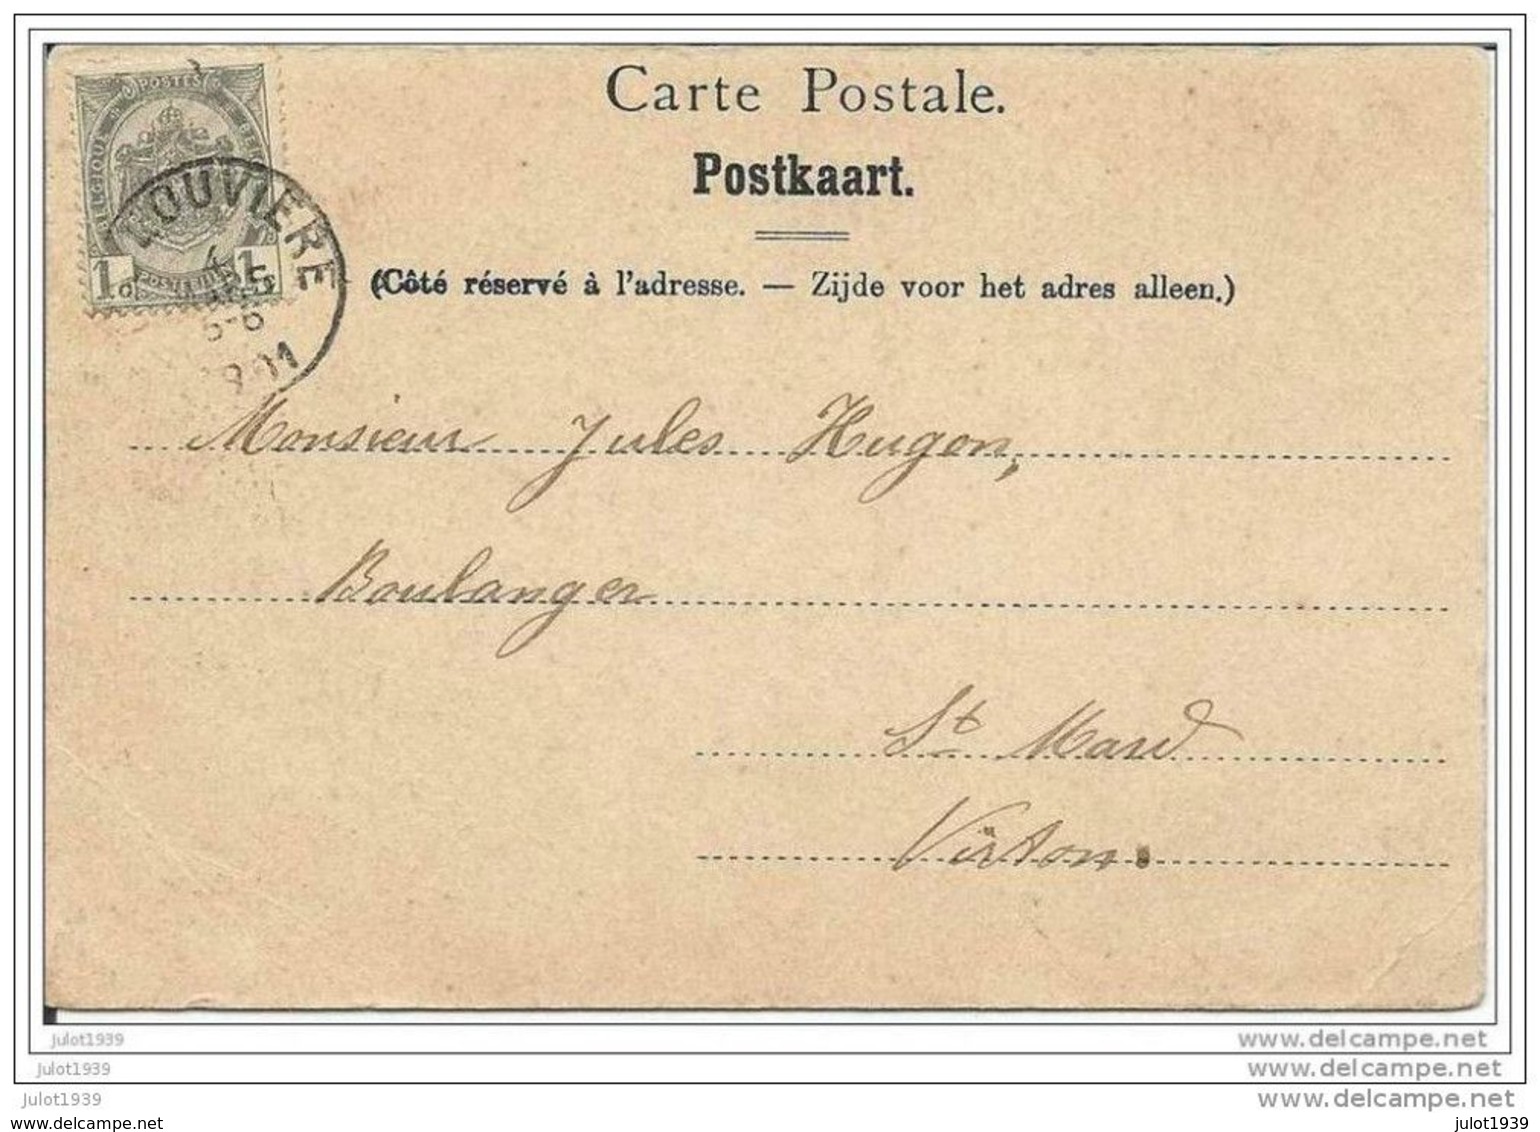 POSTES
BELGIQUE
1c 1c
LOUVIERE
4
5-6
1901
Carte Postale.
Postkaart.
(Côté réservé à l'adresse. — Zijde voor het adres alleen.)
Monsieur Jules Hugon,
Boulanger
St Mard
Virton.
julot1939 www.delcampe.net
julot1939 www.delcampe.net
julot1939 www.delcampe.net
www.delcampe.net julot1939